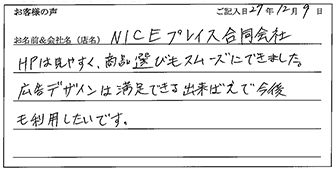 お客様の声 ご記入日 27年 12月 9日
お名前&会社名(店名) NICEプレイス合同会社
HPは見やすく、商品選びもスムーズにできました。
広告デザインは満足できる出来ばえで今後
も利用したいです。